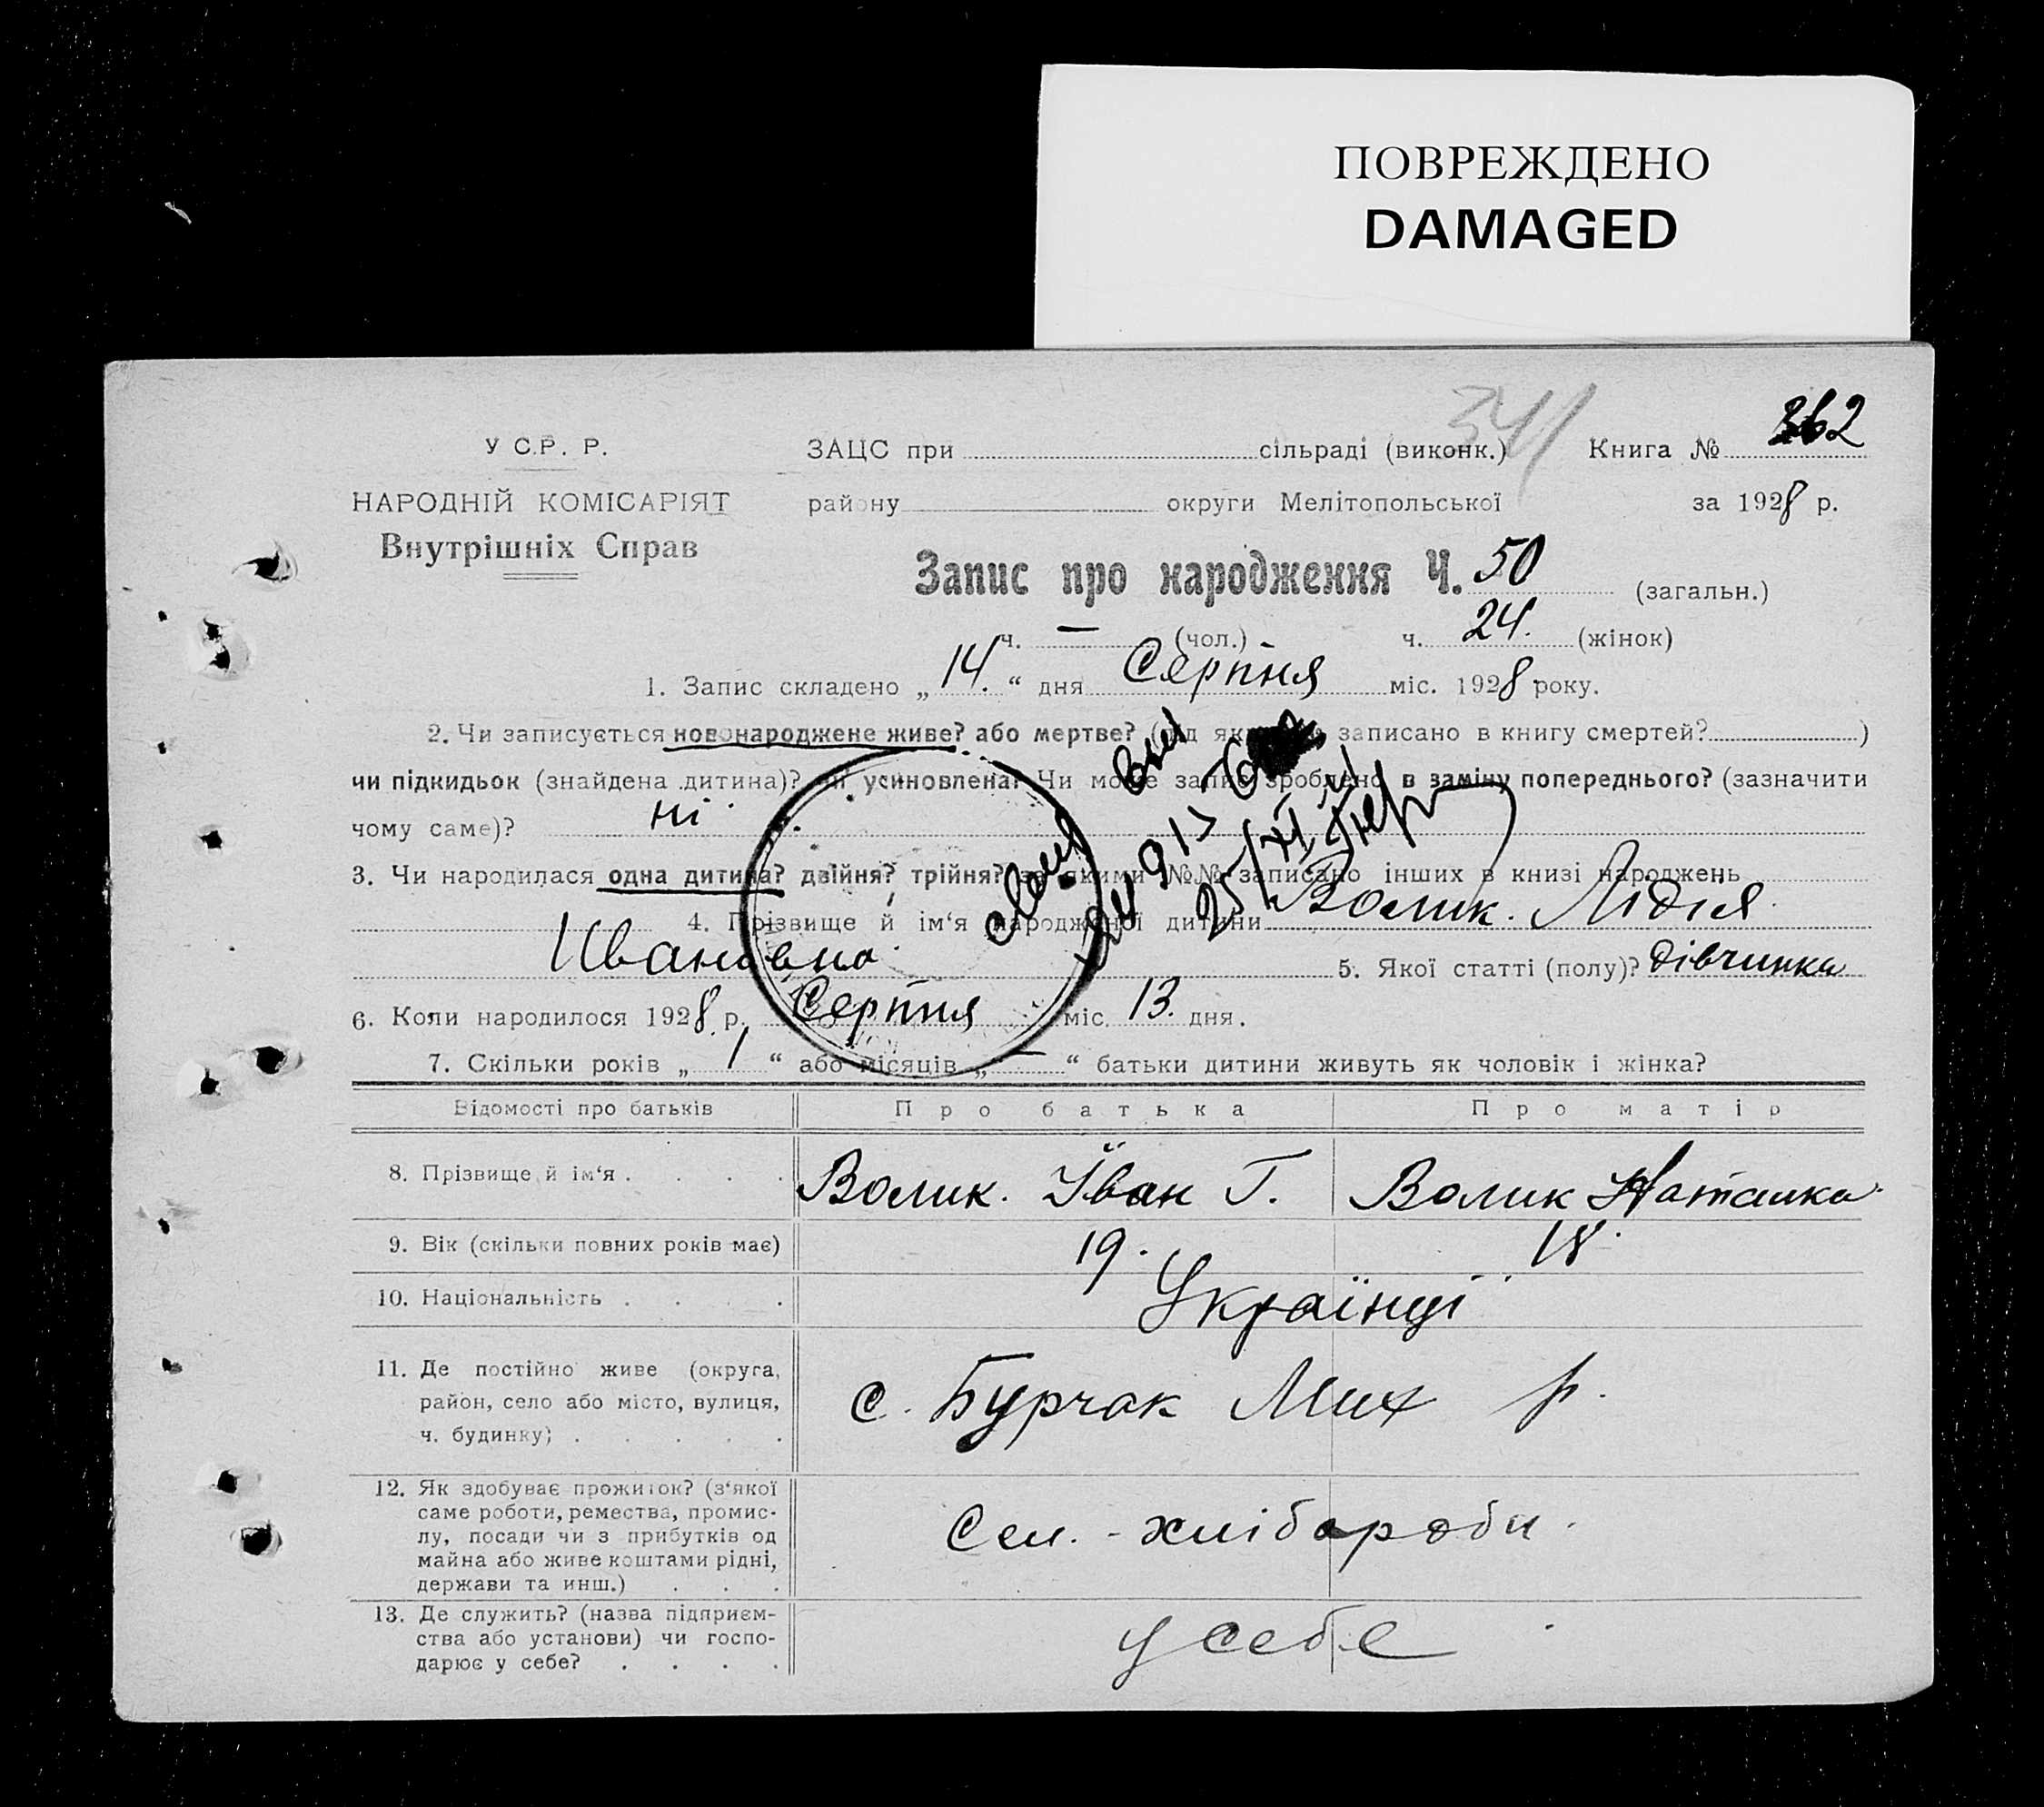 ПОВРЕЖДЕНО
DAMAGED
341
У С.Р. Р.
ЗАЦС при сільраді (виконк.) Книга № 362
НАРОДНІЙ КОМІСАРІЯТ
району округи Мелітопольської за 1928 р.
Внутрішніх Справ
Запис про народження Ч. 50 (загальн.)
ч. — (чол.) ч. 24. (жінок)
1. Запис складено „14.“ дня Серпня міс. 1928 року.
2. Чи записується новонароджене живе? або мертве? (під яким записано в книгу смертей? )
чи підкидьок (знайдена дитина)? чи усиновлена? Чи може запис зроблено в заміну попереднього? (зазначити
чому саме)? ні
3. Чи народилася одна дитина? двійня? трійня? за якими №№ записано інших в книзі народжень
4. Прізвище й ім'я народженої дитини Волик. Лідія
Ивановна 5. Якої статті (полу)? дівчинка
6. Коли народилося 1928 р. Серпня міс. 13. дня.
7. Скільки років „ 1 “ або місяців „ — “ батьки дитини живуть як чоловік і жінка?
Відомості про батьків Про батька Про матір
8. Прізвище й ім'я . . . . Волик. Іван Г. Волик Наталка
9. Вік (скільки повних років має) 19. 18.
10. Національність . . . . Українці
11. Де постійно живе (округа,
район, село або місто, вулиця,
ч. будинку) . . . . .
с. Бурчак Мих р.
12. Як здобуває прожиток? (з'якої
саме роботи, ремества, промис-
лу, посади чи з прибутків од
майна або живе коштами рідні,
держави та инш.) . . .
Сел. - хлібороби.
13. Де служить? (назва підприєм-
ства або установи) чи госпо-
дарює у себе? . . . .
у себе